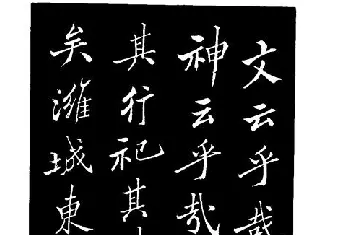 文云乎哉
神云乎哉
其行祀其
矣濰城東